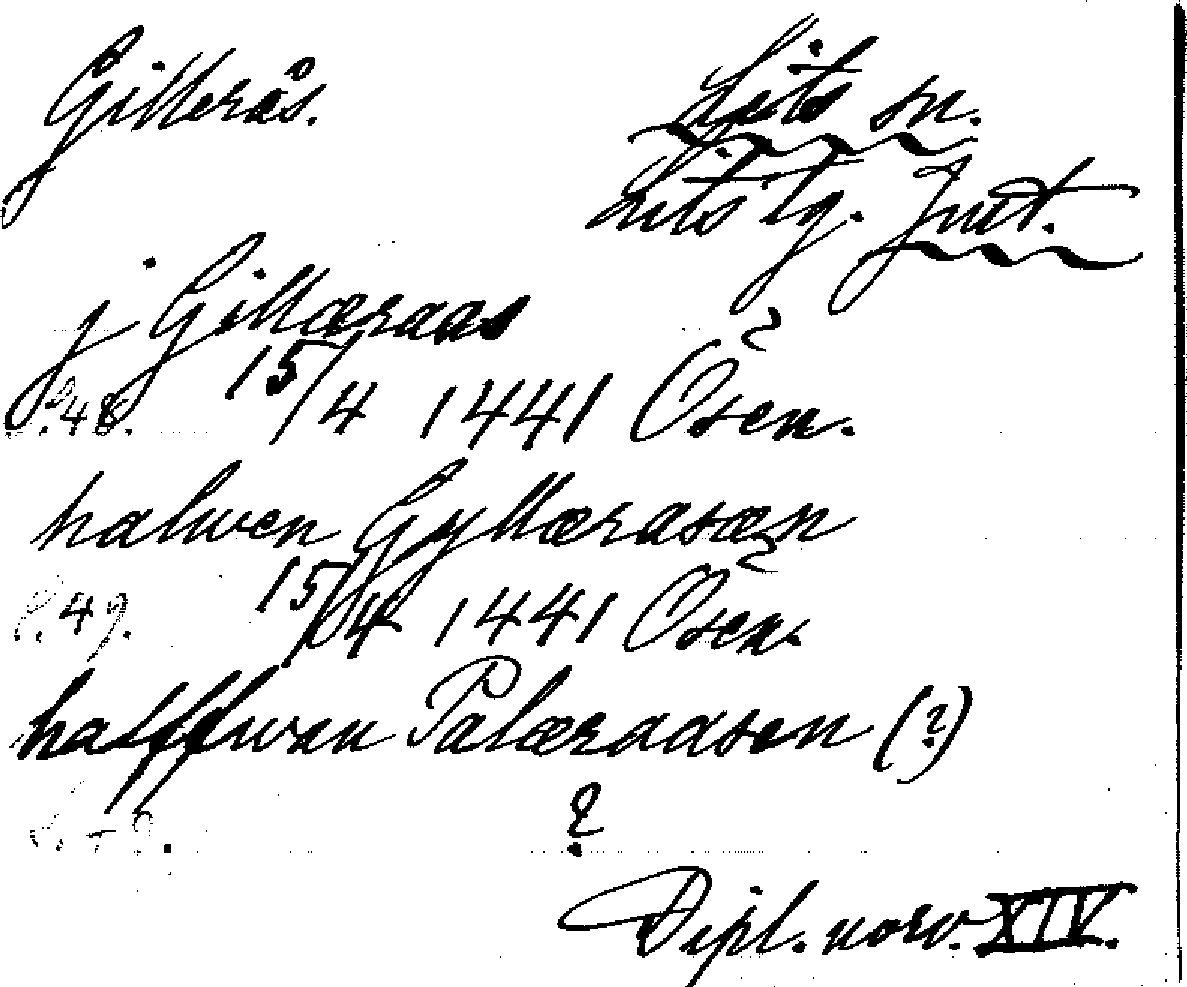 Gillerås. Lits sn.
Lits tg. Jmt.
j Gillæraas
s. 48. 15/4 1441 Õsen.
halwen Gyllæraszn
s. 49. 15/4 1441 Õsen.
halffwen Palæraasen (?)
?
Dipl. norv. XIV.